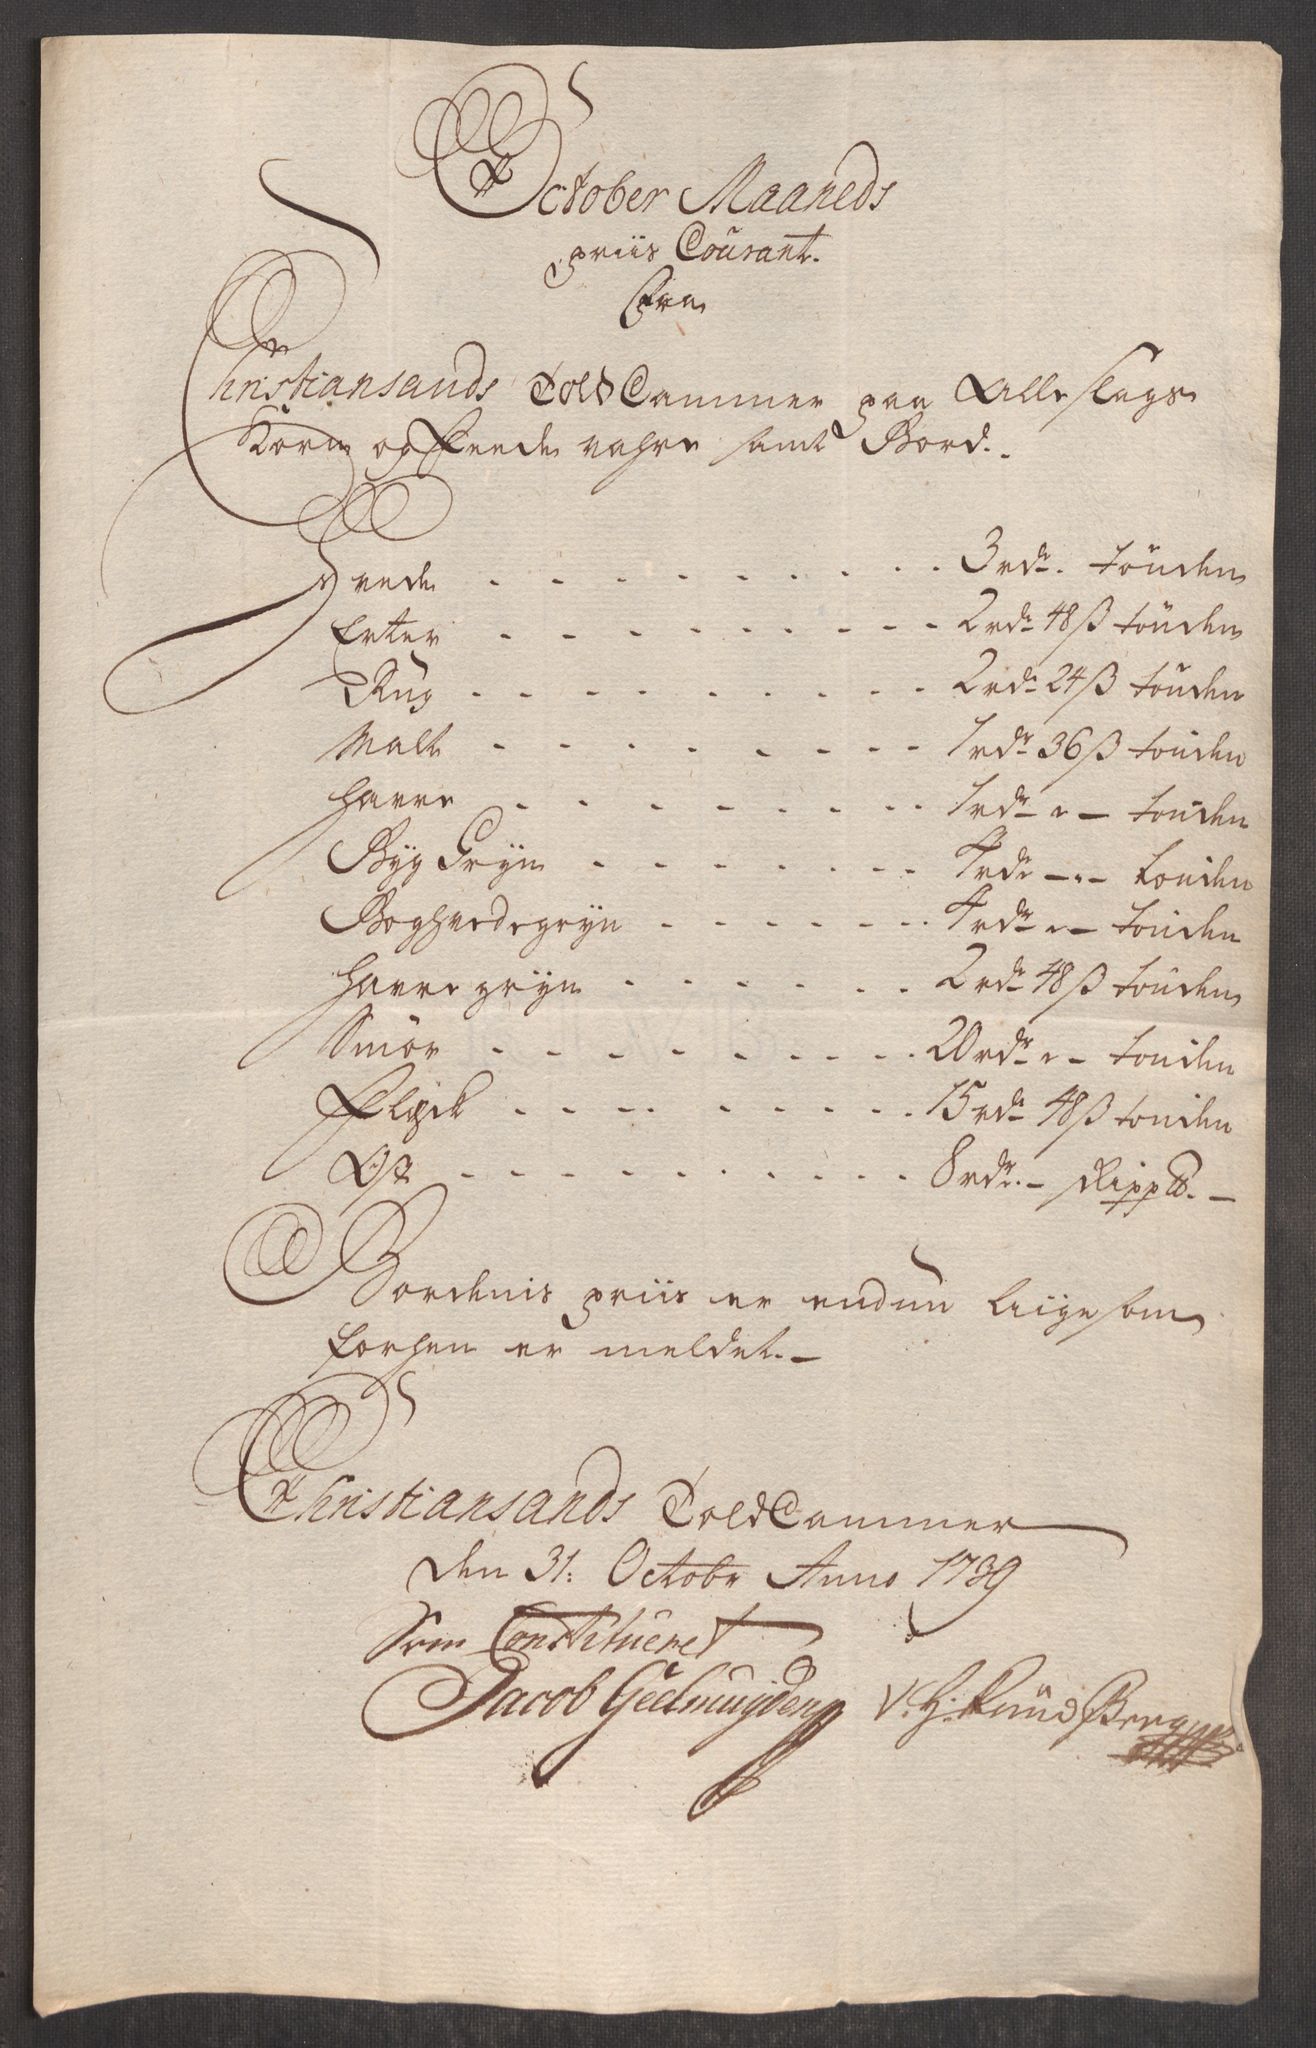 October Maaneds
priis Courant.
Fra
Christiansands Told Cammer paa Alle slags
Korn og Feede vahre samt Bord.
Hvede - - - - - - - - 3 rdr. tönden
Erter - - - - - - - - 2 rdr 48 ß tönden
Rug - - - - - - - - 2 rdr 24 ß tönden
Malt - - - - - - - - 1 rdr 36 ß tönden
Havre - - - - - - - - 1 rdr " - tönden
Byg Gryn - - - - - - 4 rdr - " - tönden
Boghvedegryn - - - - - - 4 rdr " - tönden
Havre gryn - - - - - - 2 rdr 48 ß tönden
Smör - - - - - - - - 20 rdr " - tönden
Flesk - - - - - - - - 15 rdr 48 ß tönden
Ost - - - - - - - - 8 rdr. -
Bordenis priis er endnu liige som
forhen er meldet. -
Christiansands Told Cammer
den 31: Octobr Anno 1739
Som Constitueret
Jacob Geelmuyden V. H. Knud Berg